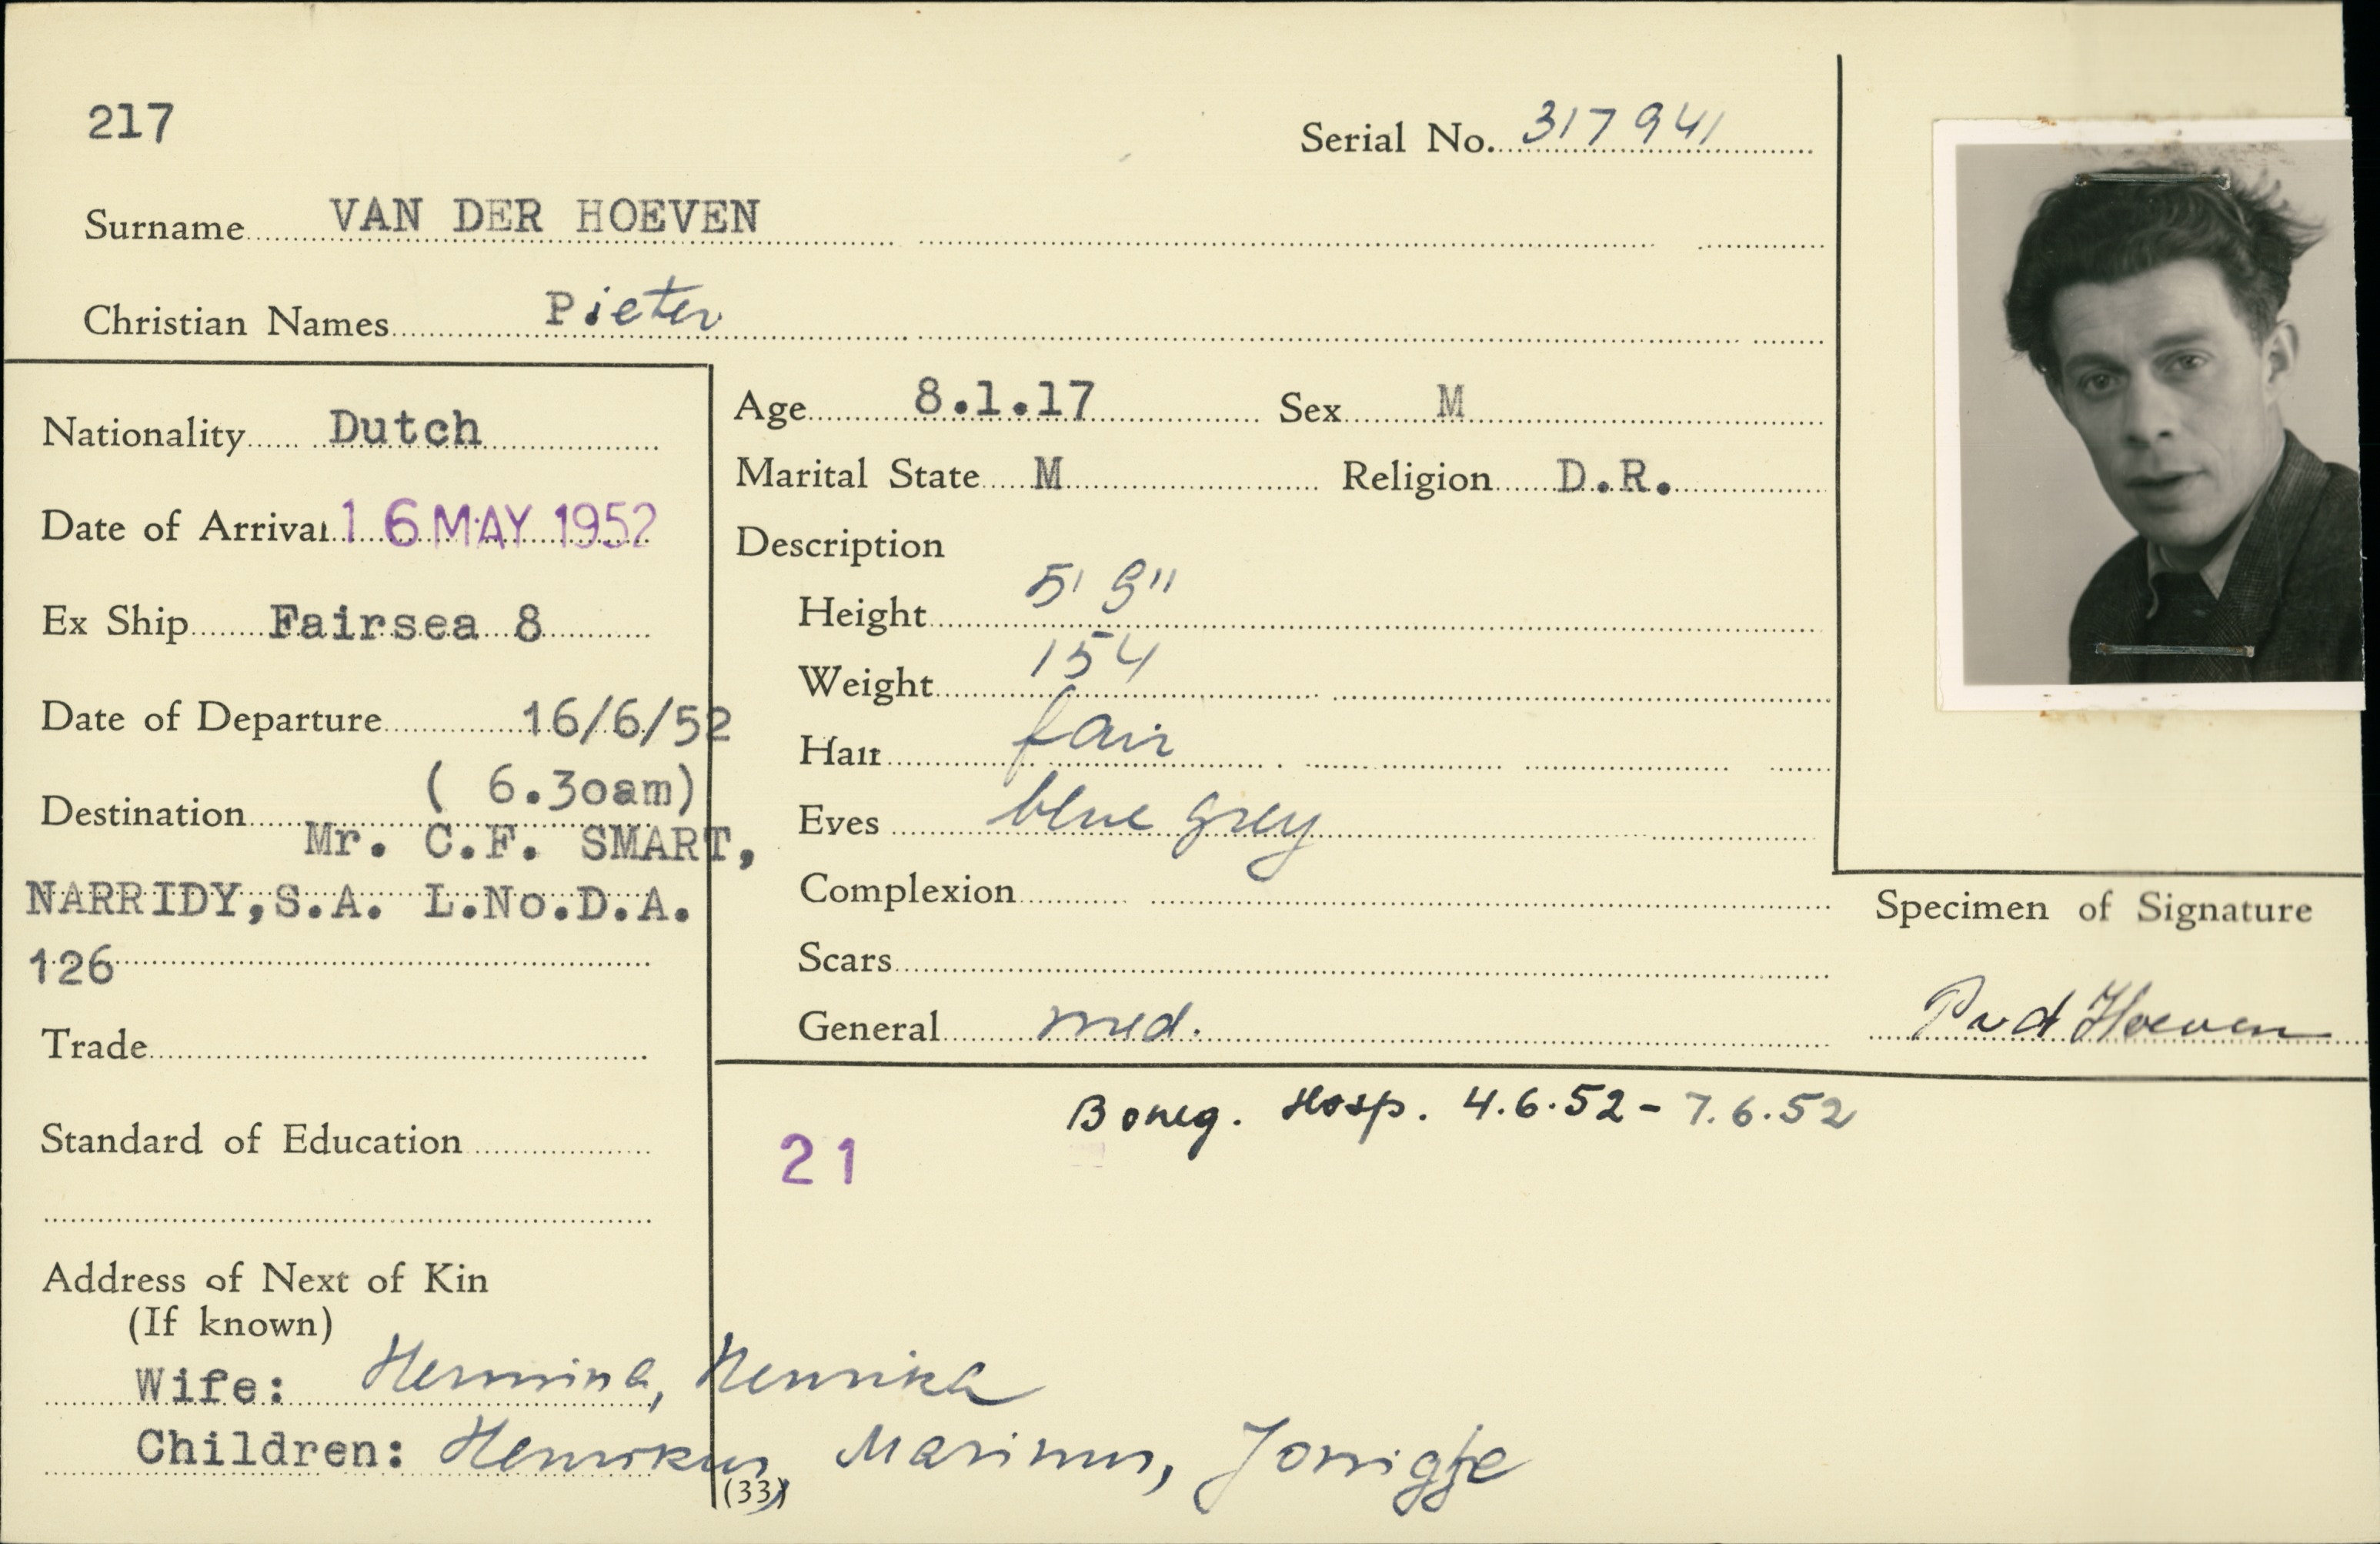 217
Serial No. 317941
Surname VAN DER HOEVEN
Christian Names Pieter
Nationality Dutch
Date of Arrival 16 MAY 1952
Ex Ship Fairsea 8
Date of Departure 16/6/52
( 6.30am)
Destination
Mr. C.F. SMART,
NARRIDY,S.A. L.No.D.A.
126
Trade
Standard of Education
Address of Next of Kin
(If known)
Wife: Hermina, Henrika
Children: Henrikus, Marinus, Jonigje
(33)
Age 8.1.17 Sex M
Marital State M Religion D.R.
Description
Height 5' 9"
Weight 154
Hair fair
Eyes blue grey
Complexion
Scars
General med.
Specimen of Signature
P v d Hoeven
Boneg. Hosp. 4.6.52 - 7.6.52
21